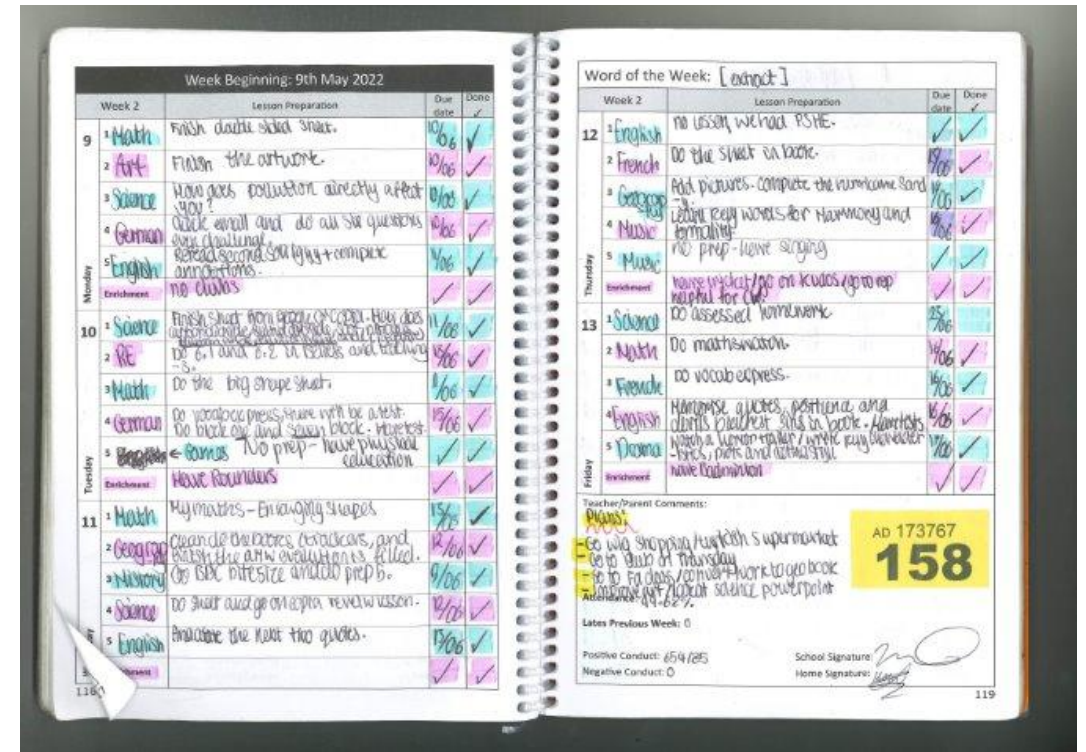 Week Beginning: 9th May 2022
Week 2 Lesson Preparation Due date Done ✓
Monday
9 1 Math Finish double sided sheet. 10/06 ✓
2 Art Finish the artwork. 10/06 ✓
3 Science How does pollution directly affect 10/06 ✓
you?
4 German Quick email and do all six questions ✓
even challenge.
5 English Reread second + complete ✓
annotations.
Enrichment no clubs ✓ ✓
Tuesday
10 1 Science Finish sheet from google How does 11/06 ✓
2 RE Do 6.1 and 6.2 in beliefs and teaching ✓
-s.
3 Math Do the big shape sheet. ✓
4 German Do vocabexpress, there will be a test. 15/06 ✓
Do block one and seven block. Have test.
5 ← Games No prep - have physical ✓ ✓
education
Enrichment Have Rounders ✓ ✓
11 1 Math Mymaths - Enlarging shapes ✓
2 Geograp and 12/06 ✓
finish the filled.
3 History Go BBC bitesize and do prep 6. 9/06 ✓
4 Science Do sheet and go on lesson. ✓
5 English Annotate the next two quotes. 13/06 ✓
✓ ✓
116
Word of the Week: [extract]
Week 2 Lesson Preparation Due date Done ✓
Thursday
12 1 English no lesson, we had PSHE. ✓ ✓
2 French Do the sheet in book. ✓
3 Geograp Add pictures. complete the hurricane Sand ✓
-y.
4 Music Learn key words for Harmony and ✓
tonality
5 Music no prep - have singing ✓ ✓
Enrichment have cricket/go on kudos/go to rep ✓ ✓
helpful for
Friday
13 1 Science Do assessed homework. 25/06
2 Math Do mathswatch. 14/06 ✓
3 French Do vocab express. 16/06 ✓
4 English Memorise quotes, and ✓
sins in book.
5 Drama Watch a horror trailer / write key character ✓
-istics, plots and acting style
Enrichment have Badminton ✓ ✓
Teacher/Parent Comments:
Plans:
- Go wig shopping/turkish supermarket
- Go to club on Thursday
- Go to work to geo book
- Improve art / look at science powerpoint
Attendance:
Lates Previous Week: 0
Positive Conduct: 654/785
Negative Conduct: 0
School Signature:
Home Signature:
119
AD 173767
158